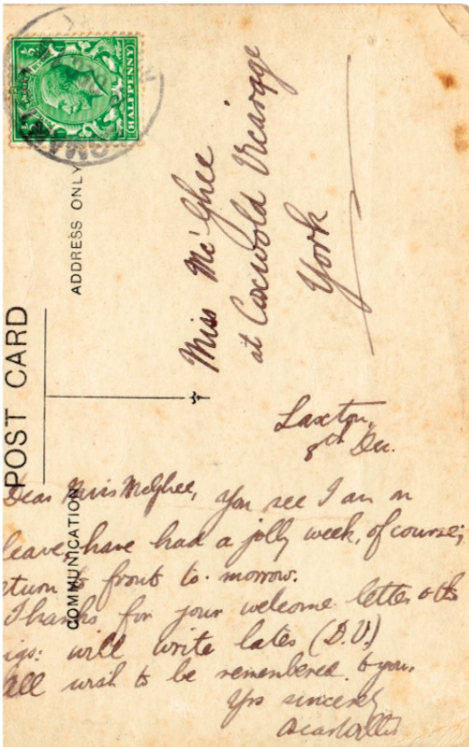 HALFPENNY
POST CARD
ADDRESS ONLY
COMMUNICATION
Miss McGhee
at Coxwold Vicarage
York
Laxton,
8th Dec.
Dear Miss McGhee, you see I am on
leave, have had a jolly week, of course;
eturn to front to-morrow.
Thanks for your welcome letter &
igs: will write later (D.V.)
All wish to be remembered to you.
Yrs sincerely